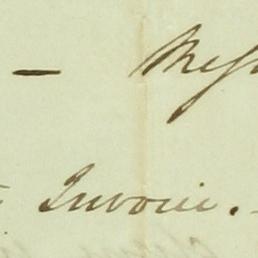 — Mess
Invoice.